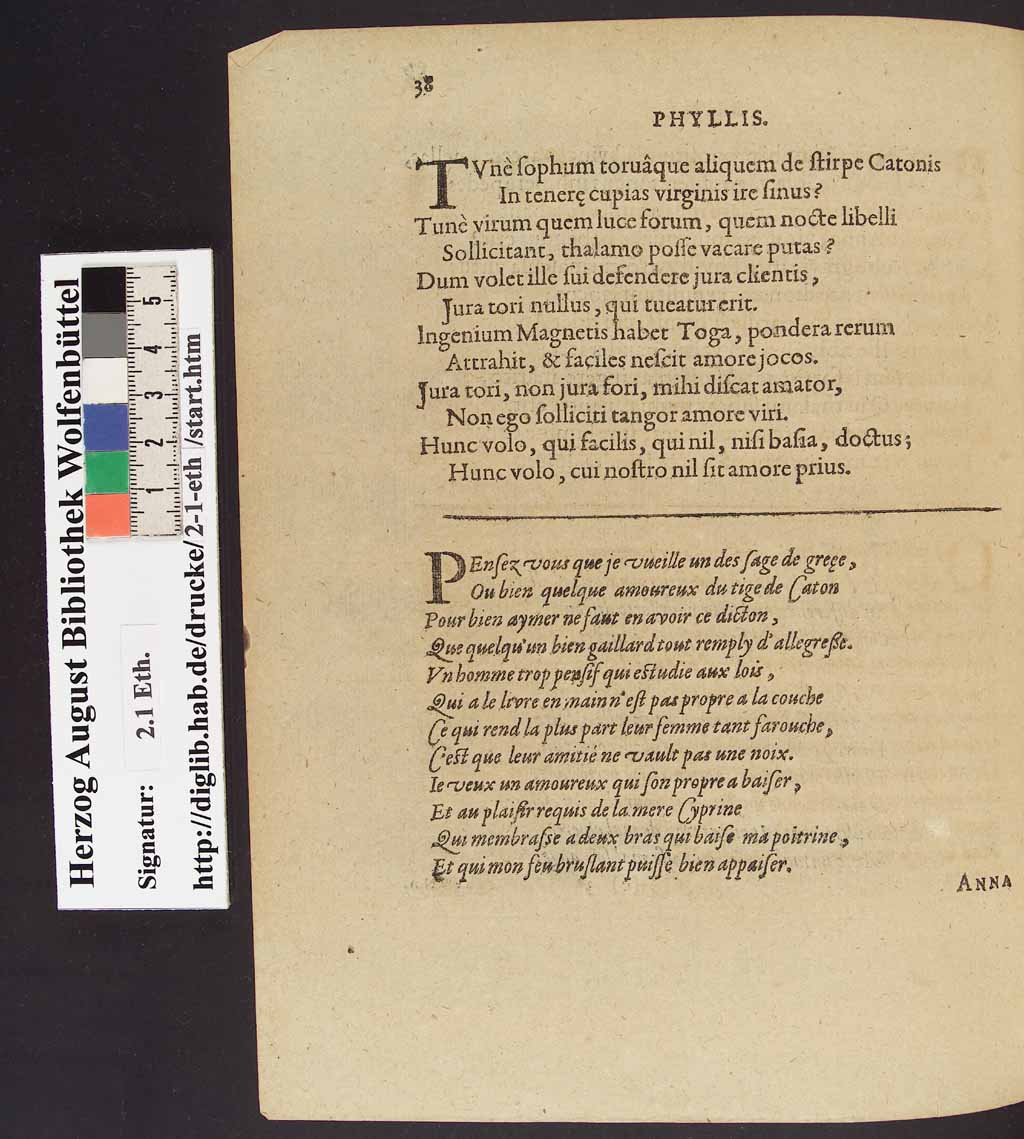 38
PHYLLIS.
TVnè ſophum toruâque aliquem de ſtirpe Catonis
In tenerę cupias virginis ire ſinus?
Tunè virum quem luce forum, quem nocte libelli
Sollicitant, thalamo poſſe vacare putas?
Dum volet ille ſui defendere jura clientis,
Jura tori nullus, qui tueatur erit.
Ingenium Magnetis habet Toga, pondera rerum
Attrahit, & faciles neſcit amore jocos.
Jura tori, non jura fori, mihi diſcat amator,
Non ego ſolliciti tangor amore viri.
Hunc volo, qui facilis, qui nil, niſi baſia, doctus;
Hunc volo, cui noſtro nil ſit amore prius.
PEnſez vous que je vueille un des ſage de greçe,
Ou bien quelque amoureux du tige de Caton
Pour bien aymer ne faut en avoir ce dicton,
Que quelqu'un bien gaillard tout remply d'allegreße.
Vn homme trop penſif qui eſtudie aux lois,
Qui a le livre en main n'eſt pas propre a la couche
Ce qui rend la plus part leur femme tant farouche,
C'eſt que leur amitié ne vault pas une noix.
Ie veux un amoureux qui ſon propre a baiſer,
Et au plaiſir requis de la mere Cyprine
Qui membraſſe a deux bras qui baiſe ma poitrine,
Et qui mon feu bruſlant puiſſe bien appaiſer.
ANNA
Herzog August Bibliothek Wolfenbüttel
Signatur: 2.1 Eth.
http://diglib.hab.de/drucke/2-1-eth/start.htm
1 2 3 4 5